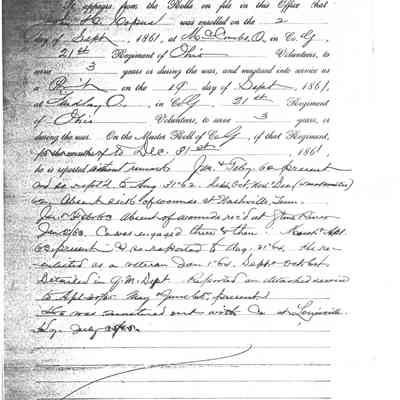 It appears from the Rolls on file in this Office that
H. Copus was enrolled on the 2
day of Sept, 1861, at McCombs, O. in Co. G,
21st Regiment of Ohio Volunteers, to
serve 3 years or during the war, and mustered into service as
a Prvt on the 19 day of Sept, 1861,
at Findlay O., in Co. G, 21st Regiment
of Ohio Volunteers, to serve 3 years, or
during the war. On the Muster Roll of Co. G, if that Regiment,
for the months of to Dec. 31st, 1861,
he is reported without remark. Jan. & Feby 62 present
and so reptd to Aug 31/62. Sept, Oct, Nov & Dec/
Absent sick of wounds at Nashville, Tenn.
Absent of wounds rec'd at Stone River
Co was engaged three & then. March & Apl.
63 present & so reported to Aug. 31/64. He re-
enlisted as a veteran Jan 1/64. Sept & Oct 64
Detailed in Q. M. Dept. Reported on detached service
to Apl 30/65 May & June 65, present
He was mustered out with Co at Louisville
Ky. July